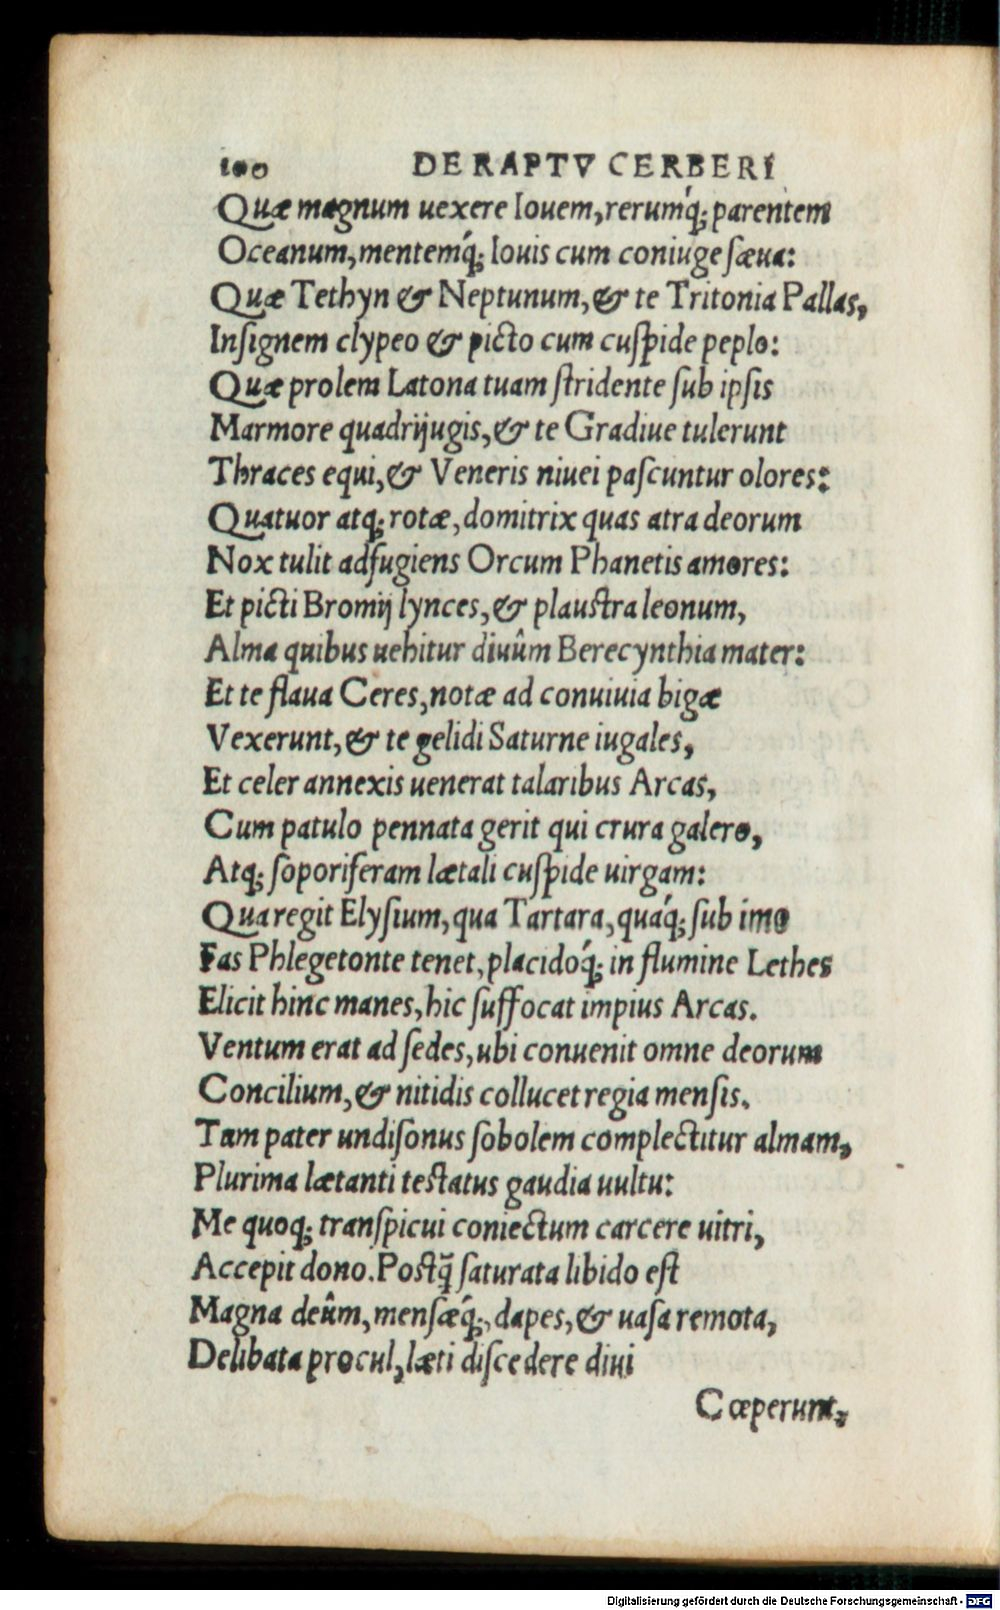 100 DE RAPTV CERBERI
Quæ magnum uexere Iouem, rerumq́; parentem
Oceanum, mentemq́; Iouis cum coniuge sæua:
Quæ Tethyn & Neptunum, & te Tritonia Pallas,
Insignem clypeo & picto cum cuspide peplo:
Quæ prolem Latona tuam stridente sub ipsis
Marmore quadrijugis, & te Gradiue tulerunt
Thraces equi, & Veneris niuei pascuntur olores:
Quatuor atq; rotæ, domitrix quas atra deorum
Nox tulit adfugiens Orcum Phanetis amores:
Et picti Bromij lynces, & plaustra leonum,
Alma quibus uehitur diuûm Berecynthia mater:
Et te flaua Ceres, notæ ad conuiuia bigæ
Vexerunt, & te gelidi Saturne iugales,
Et celer annexis uenerat talaribus Arcas,
Cum patulo pennata gerit qui crura galero,
Atq; soporiferam lætali cuspide uirgam:
Qua regit Elysium, qua Tartara, quáq; sub imo
Fas Phlegetonte tenet, placidoq́; in flumine Lethes
Elicit hinc manes, hic suffocat impius Arcas.
Ventum erat ad sedes, ubi conuenit omne deorum
Concilium, & nitidis collucet regia mensis.
Tam pater undisonus sobolem complectitur almam,
Plurima lætanti testatus gaudia uultu:
Me quoq; transpicui coniectum carcere uitri,
Accepit dono. Postq̃ saturata libido est
Magna deûm, mensæq́;, dapes, & uasa remota,
Delibata procul, læti discedere diui
Cœperunt,
Digitalisierung gefördert durch die Deutsche Forschungsgemeinschaft - DFG